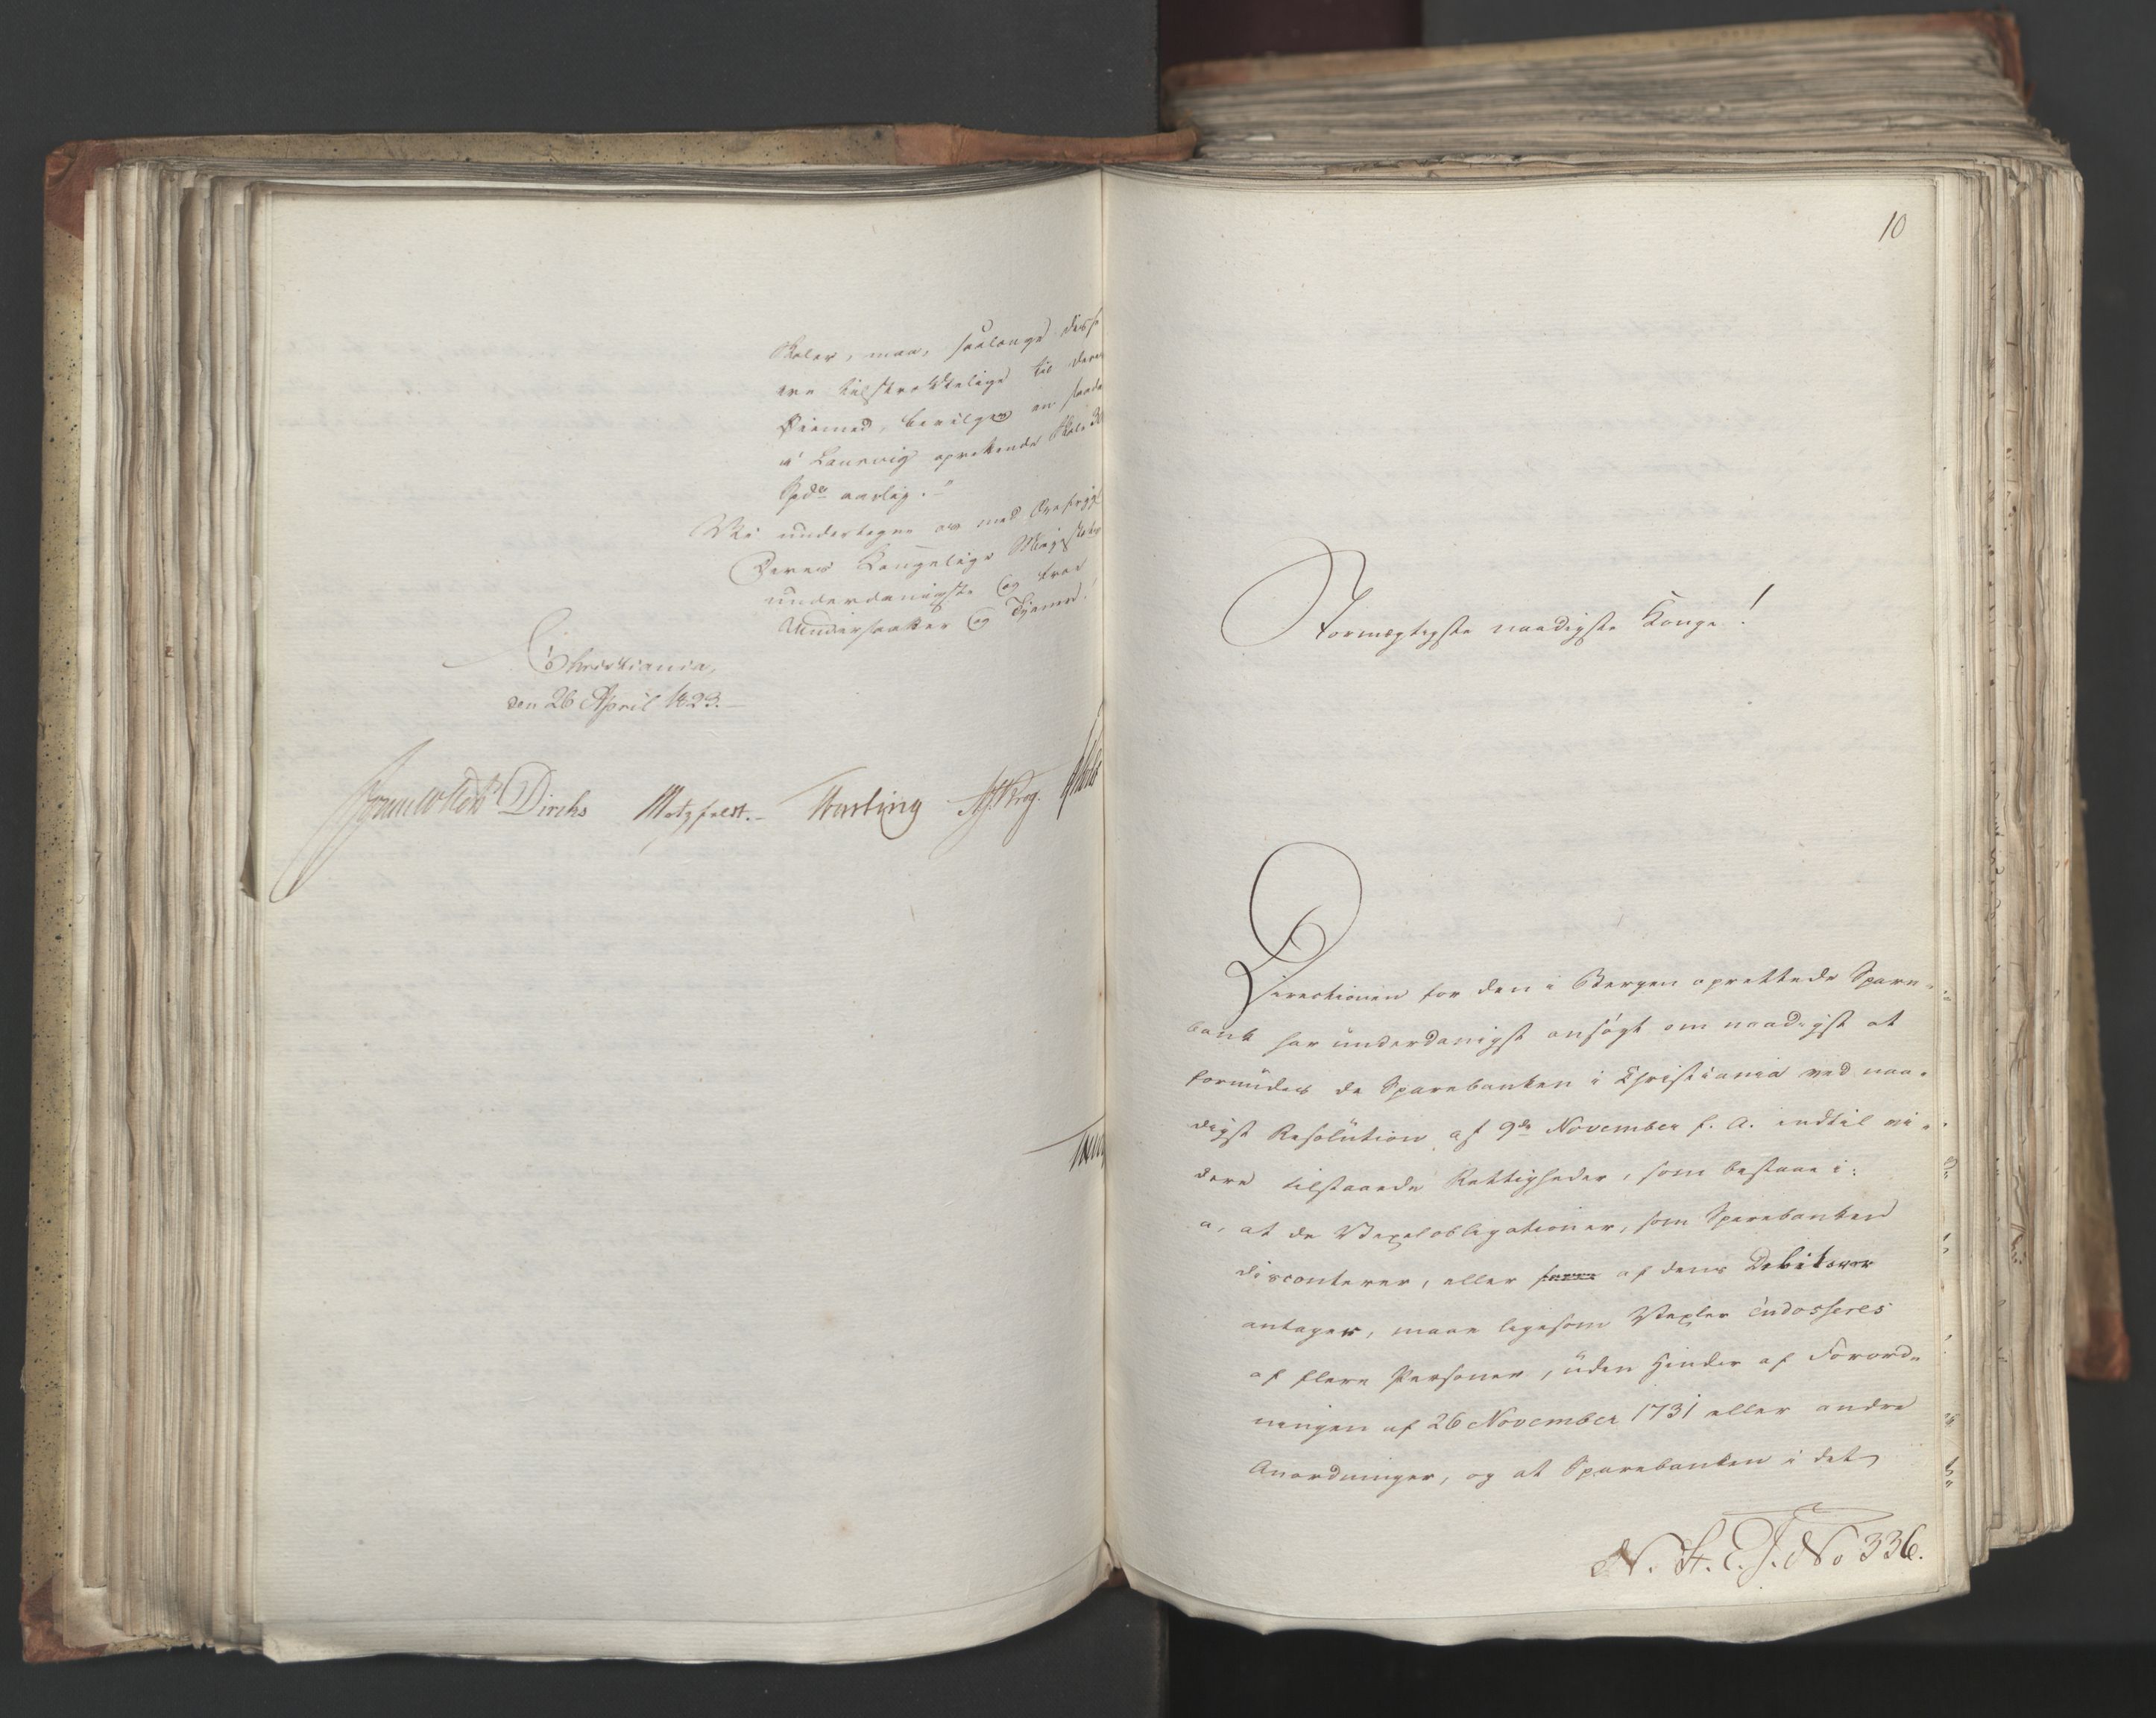 Skoler, maa, saalænge disse
ere tilstrækkelige til deres
Øiemed, bevilges en saada
i Laurvig oprettende Skole 30
Spd aarlig."
Vi undertegne os med Ærefrygt
Deres Kongelige Majestæts
underdanigste og troe
Undersaatter og Tjenere.
Christiania,
den 26 April 1823.
Diriks Motzfeldt. Krog.
10
Stormægtigste naadigste Konge!
Directionen for den i Bergen oprettede Spare-
bank har underdanigst ansøgt om naadigst at
forundes de Sparebanken i Christiania ved naa-
digst Resolution af 9de November f. A. indtil vi-
dere tilstaaede Rettigheder, som bestaae i:
a, at de Vexelobligationer, som Sparebanken
disconterer, eller af dens Debitorer
antager, maae ligesom Vexler endosseres
af flere Personer, uden Hinder af Forord-
ningen af 26 November 1731 eller andre
Anordninger, og at Sparebanken i det
N. H. E. J. No 336.